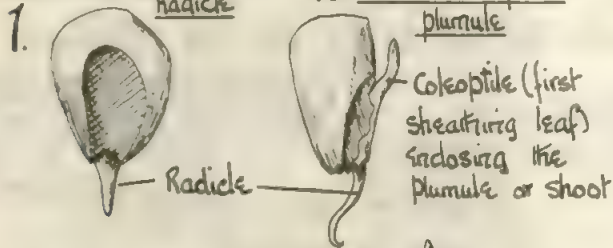 1.
Radicle
plumule
Coleoptile (first
sheathing leaf)
enclosing the
plumule or shoot
Radicle